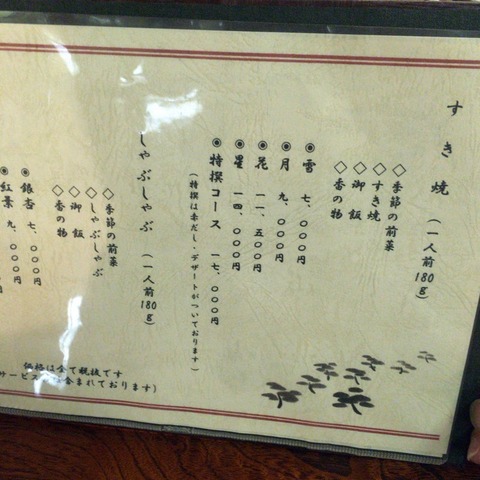 すき焼（一人前180g）
◇季節の前菜
◇すき焼
◇御飯
◇香の物
◉雪 七、〇〇〇円
◉月 九、〇〇〇円
◉花 一一、五〇〇円
◉星 一四、〇〇〇円
◉特撰コース 一七、〇〇〇円
（特撰は赤だし・デザートがついております）
しゃぶしゃぶ（一人前180g）
◇季節の前菜
◇しゃぶしゃぶ
◇御飯
◇香の物
◉銀杏 七、〇〇〇円
◉紅葉 九、〇〇〇円
価格は全て税抜です
サービス 含まれております）